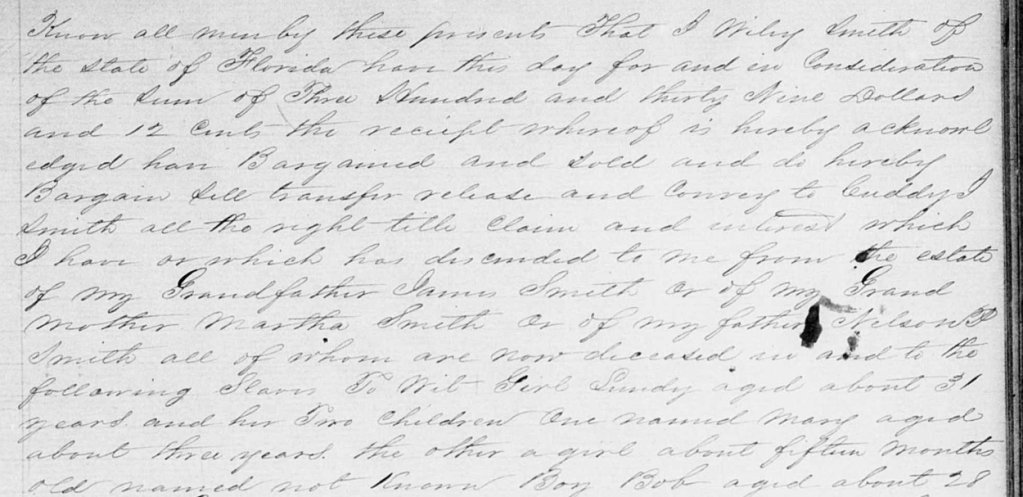 Know all men by these presents That I Wiley Smith of
the state of Florida have this day for and in Consideration
of the Sum of Three Hundred and thirty Nine Dollars
and 12 Cents the reciept whereof is hereby acknowl
edged have Bargained and Sold and do hereby
Bargain Sell transfer release and Convey to Cuddy I
Smith all the right title Claim and interest which
I have or which has discended to me from the estate
of my Grandfather James Smith or of my Grand
Mother Martha Smith Or of my father Nelson P
Smith all of whom are now deceased in and to the
following Slaves To Wit Girl Sundy aged about 31
years and her Two Children One named Mary aged
about three years the other a girl about fifteen Months
old named not Known Boy Bob aged about 28